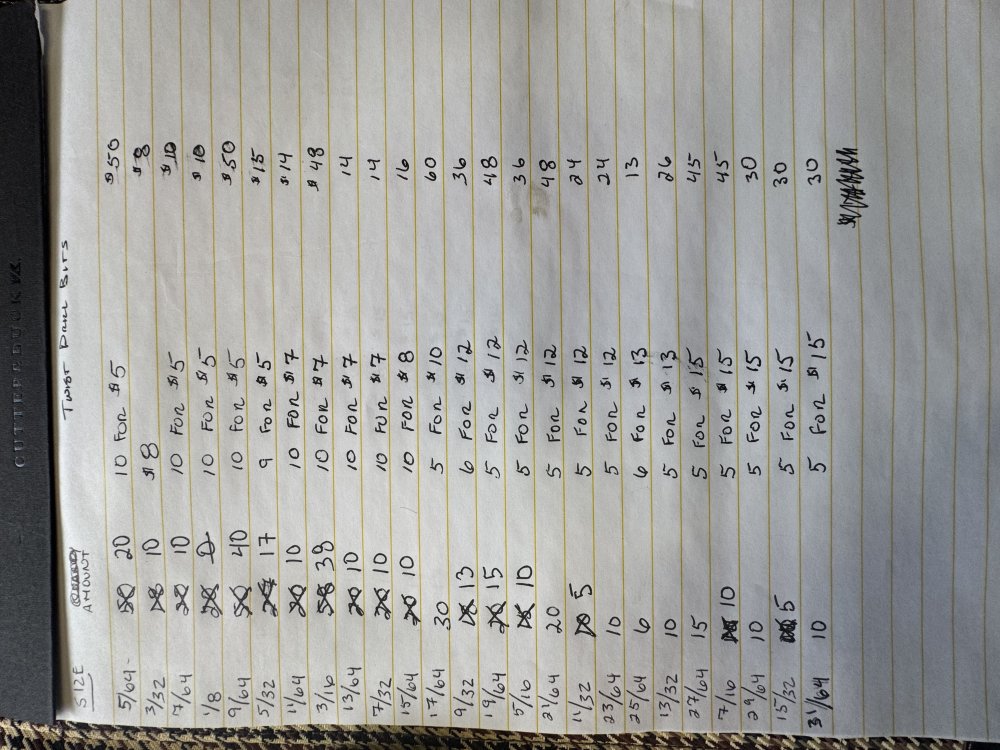 TWIST DRILL BITS
SIZE AMOUNT
5/64 20 10 FOR $5 $50
3/32 10 $8 $8
7/64 10 10 FOR $5 $10
1/8 0 10 FOR $5 $10
9/64 40 10 FOR $5 $50
5/32 17 9 FOR $5 $15
11/64 10 10 FOR $7 $14
3/16 38 10 FOR $7 $48
13/64 10 10 FOR $7 14
7/32 10 10 FOR $7 14
15/64 10 10 FOR $8 16
17/64 30 5 FOR $10 60
9/32 13 6 FOR $12 36
19/64 15 5 FOR $12 48
5/16 10 5 FOR $12 36
21/64 20 5 FOR $12 48
11/32 5 5 FOR $12 24
23/64 10 5 FOR $12 24
25/64 6 6 FOR $13 13
13/32 10 5 FOR $13 26
27/64 15 5 FOR $15 45
7/16 10 5 FOR $15 45
29/64 10 5 FOR $15 30
15/32 5 5 FOR $15 30
31/64 10 5 FOR $15 30